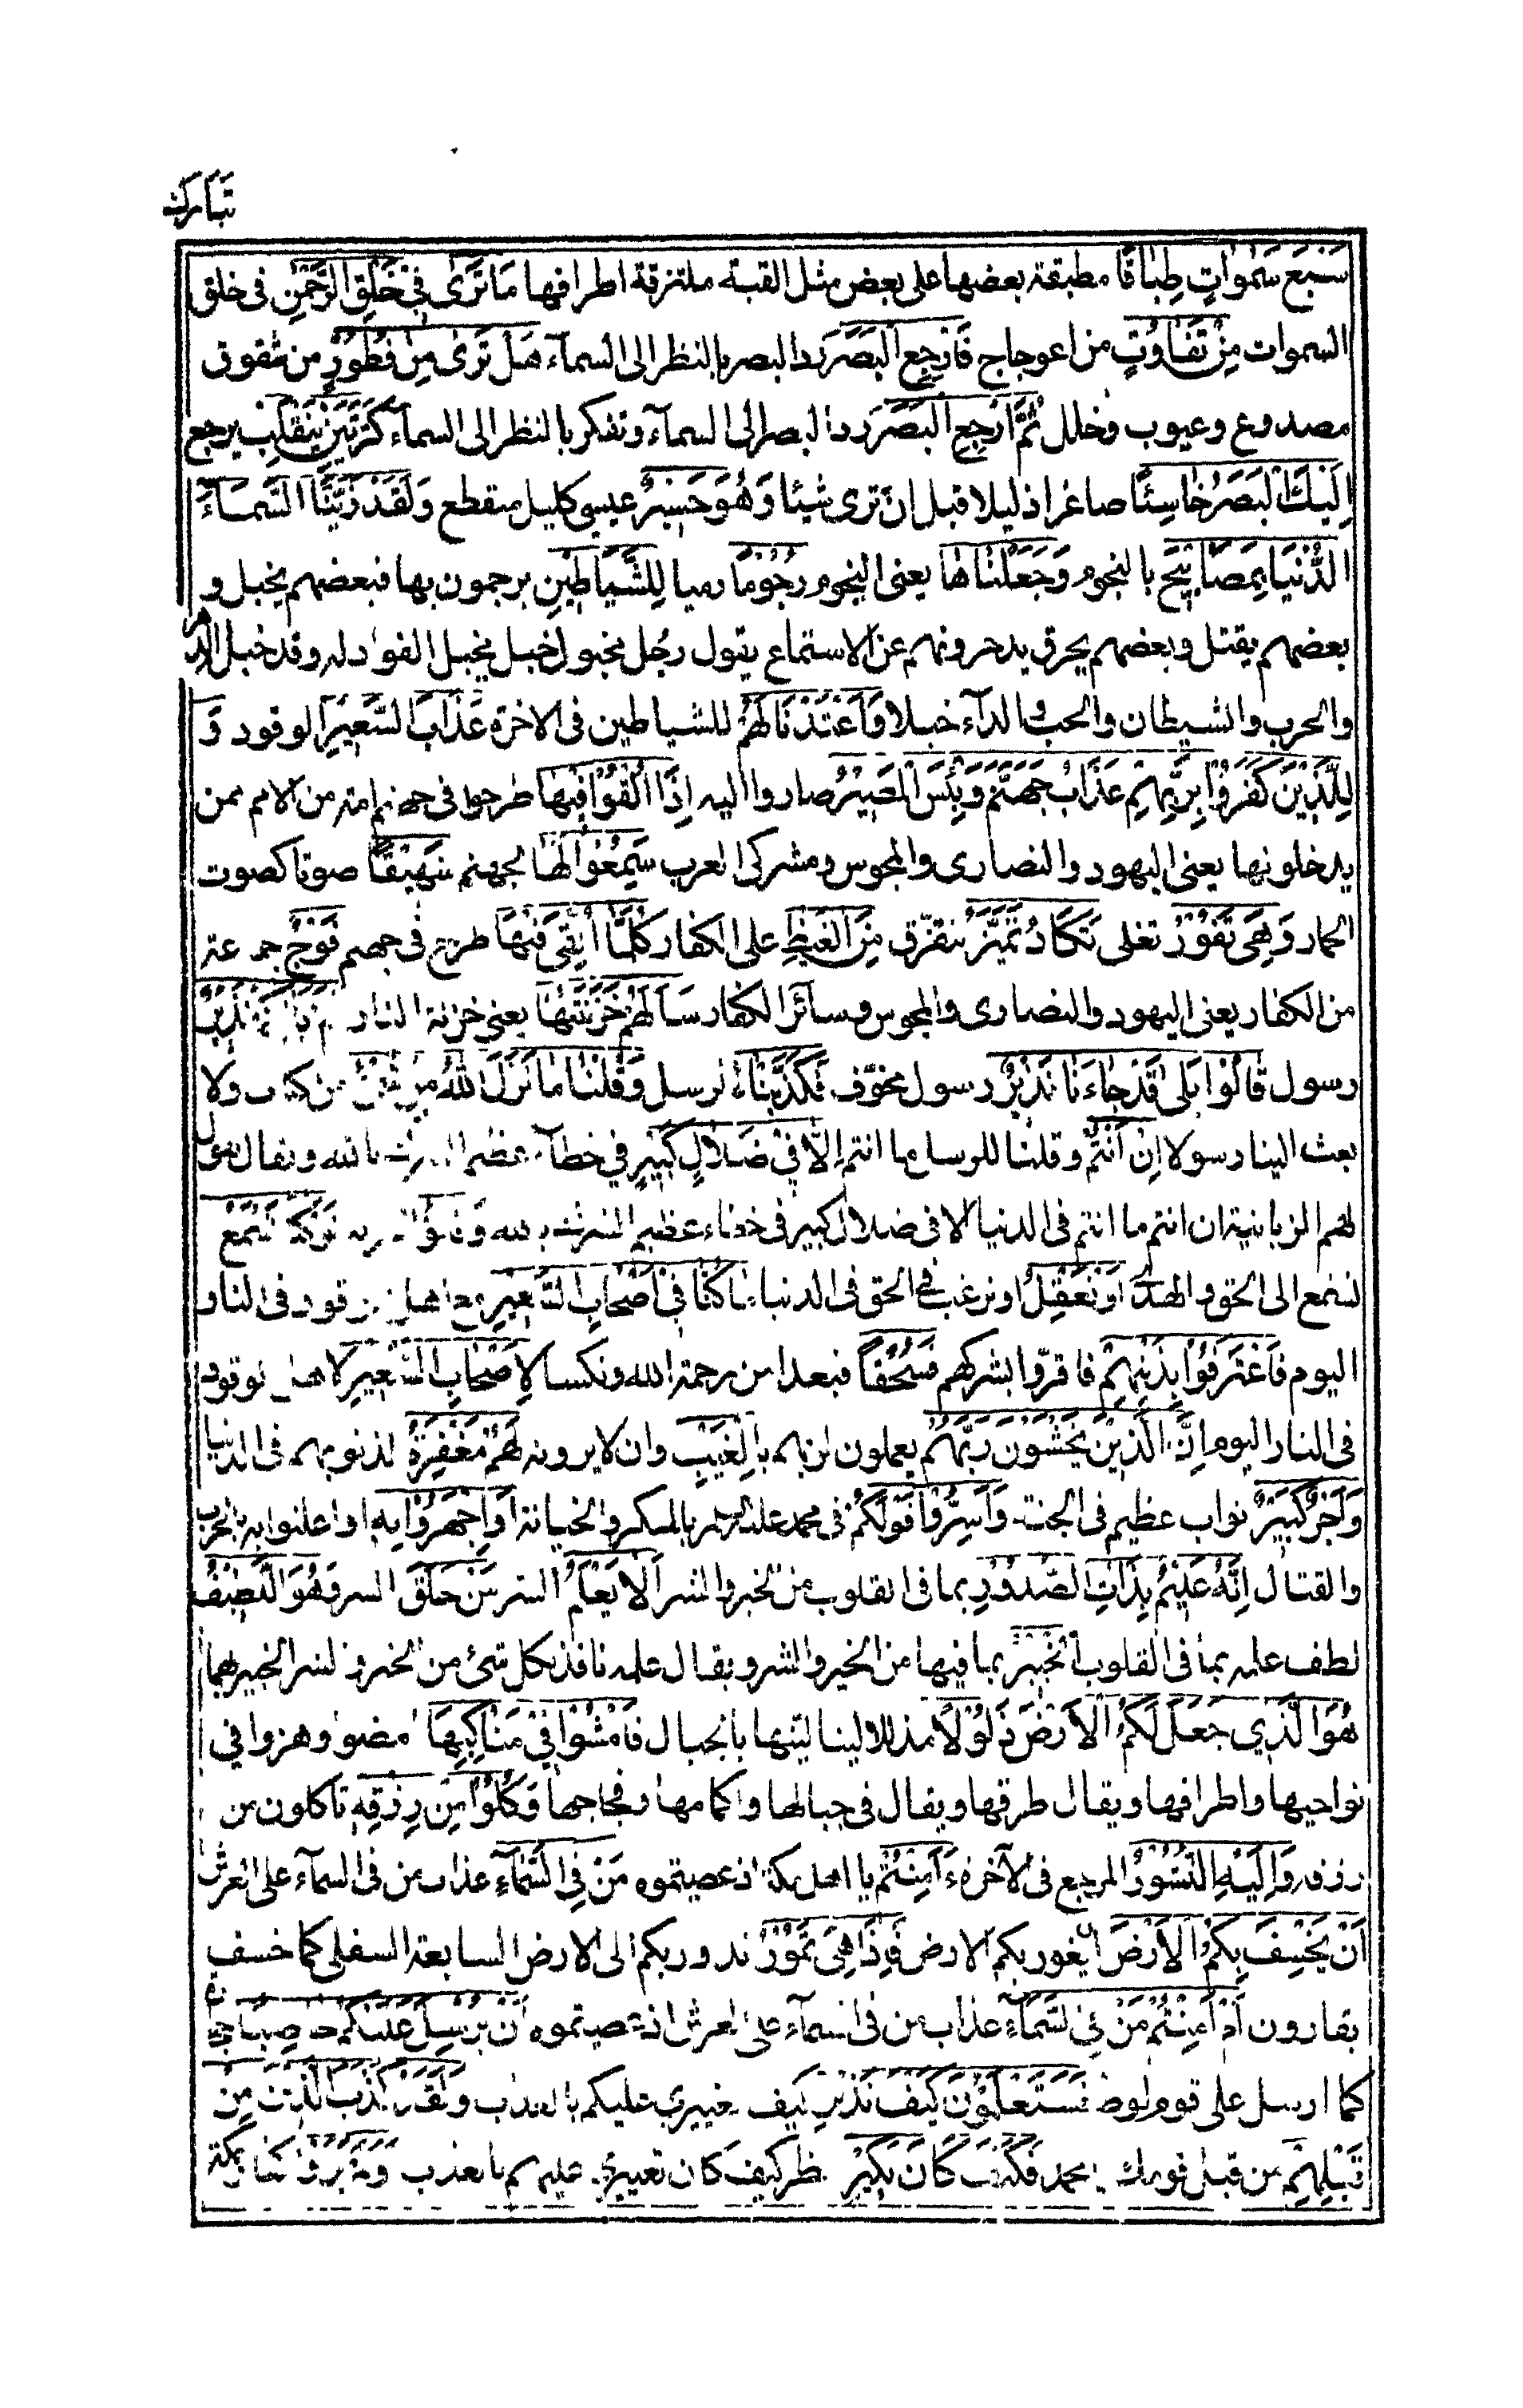 تبارك
سَبْعَ سَمٰوَاتٍ طِبَاقًا مطبقة بعضها على بعض مثل القبة ملتزقة اطرافها مَا تَرٰى فِيْ خَلْقِ الرَّحْمٰنِ فى خلق
السموات مِنْ تَفَاوُتٍ من اعوجاج فَارْجِعِ الْبَصَرَ رد البصر بالنظر الى السمآء هَلْ تَرٰى مِنْ فُطُوْرٍ من شقوق
مصدوع وعيوب وخلل ثُمَّ ارْجِعِ الْبَصَرَ رد البصر الى السمآء وتفكر بالنظر الى السمآء كَرَّتَيْنِ يَنْقَلِبْ يرجع
اِلَيْكَ الْبَصَرُ خَاسِئًا صاغرا ذليلا قبل ان ترى شيئا وَهُوَ حَسِيْرٌ عيى كليل منقطع وَلَقَدْ زَيَّنَّا السَّمَآءَ
الدُّنْيَا بِمَصَابِيْحَ بالنجوم وَجَعَلْنَاهَا يعنى النجوم رُجُوْمًا رميا لِلشَّيَاطِيْنِ يرجمون بها فبعضهم يخبل و
بعضهم يقتل وبعضهم يحرق يدحرونهم عن الاستماع يقول رجل مخبول خبل يخبل الفواد له وقد خبل الدهر
والحرب والشيطان والحب والدآء خبلا وَاَعْتَدْنَا لَهُمْ للشياطين فى الاخرة عَذَابَ السَّعِيْرِ الوقود وَ
لِلَّذِيْنَ كَفَرُوْا بِرَبِّهِمْ عَذَابُ جَهَنَّمَ وَبِئْسَ الْمَصِيْرُ صاروا اليه اِذَا اُلْقُوْا فِيْهَا طرحوا فى جهنم امة من الامم ممن
يدخلونها يعنى اليهود والنصارى والمجوس ومشركى العرب سَمِعُوْا لَهَا لجهنم شَهِيْقًا صوتا كصوت
الحمار وَهِيَ تَفُوْرُ تغلى تَكَادُ تَمَيَّزُ تتفرّق مِنَ الْغَيْظِ على الكفار كُلَّمَا اُلْقِيَ فِيْهَا طرح فى جهنم فَوْجٌ جماعة
من الكفار يعنى اليهود والنصارى والمجوس وسآئر الكفار سَاَلَهُمْ خَزَنَتُهَا يعنى خزنة النار نَذِيْرٌ
رسول قَالُوْا بَلٰى قَدْ جَاءَنَا نَذِيْرٌ رسول مخوّف فَكَذَّبْنَا الرسل وَقُلْنَا مَا نَزَّلَ اللّٰهُ مِنْ شَيْءٍ من كتاب ولا
بعث الينا رسولا اِنْ اَنْتُمْ وقلنا للرسل ما انتم اِلَّا فِيْ ضَلَالٍ كَبِيْرٍ في خطآء عظيم الشرك بالله ويقال يقول
لهم الزبانية ان انتم ما انتم فى الدنيا الا فى ضلال كبير فى خطاء عظيم الشرك بالله وَقَالُوْا لَوْ كُنَّا نَسْمَعُ
نسمع الى الحق والهدى اَوْ نَعْقِلُ او نرغب فى الحق فى الدنيا مَا كُنَّا فِيْ اَصْحَابِ السَّعِيْرِ مع اهل الوقود فى النار
اليوم فَاعْتَرَفُوْا بِذَنْبِهِمْ فاقرّوا بشركهم فَسُحْقًا فبعدا من رحمة الله ونكسا لِاَصْحَابِ السَّعِيْرِ لاهل الوقود
فى النار اليوم اِنَّ الَّذِيْنَ يَخْشَوْنَ رَبَّهُمْ يعملون لربهم بِالْغَيْبِ وان لا يرونه لَهُمْ مَغْفِرَةٌ لذنوبهم فى الدنيا
وَاَجْرٌ كَبِيْرٌ ثواب عظيم فى الجنة وَاَسِرُّوْا قَوْلَكُمْ فى محمد عليه السلام بالمكر والخيانة اَوِ اجْهَرُوْا بِهِ او اعلنوا به بالحرب
والقتال اِنَّهُ عَلِيْمٌ بِذَاتِ الصُّدُوْرِ بما فى القلوب من الخير والشر اَلَا يَعْلَمُ السر مَنْ خَلَقَ السر وَهُوَ اللَّطِيْفُ
لطف علمه بما فى القلوب الْخَبِيْرُ بما فيها من الخير والشر ويقال علمه نافذ بكل شئ من الخير والشر الخبير بهما
هُوَ الَّذِي جَعَلَ لَكُمُ الْاَرْضَ ذَلُوْلًا مذللا لينا لينها بالجبال فَامْشُوْا فِيْ مَنَاكِبِهَا امضوا وهزوا في
نواحيها واطرافها ويقال طرقها ويقال فى جبالها واكامها وفجاجها وَكُلُوْا مِنْ رِزْقِهِ تاكلون من
رزقه وَاِلَيْهِ النُّشُوْرُ المرجع فى الآخرة ءَاَمِنْتُمْ يا اهل مكة اذ عصيتموه مَنْ فِي السَّمَآءِ عذاب من فى السمآء على العرش
اَنْ يَخْسِفَ بِكُمُ الْاَرْضَ ان يغور بكم الارض فَاِذَا هِيَ تَمُوْرُ تدور بكم الى الارض السابعة السفلى كما خسف
بقارون اَمْ اَمِنْتُمْ مَنْ فِي السَّمَآءِ عذاب من فى السمآء على العرش اذ عصيتموه اَنْ يُرْسِلَ عَلَيْكُمْ حَاصِبًا حجارة
كما ارسل على قوم لوط فَسَتَعْلَمُوْنَ كَيْفَ نَذِيْرِ كيف تغييرى عليكم بالعذاب وَلَقَدْ كَذَّبَ الَّذِيْنَ مِنْ
قَبْلِهِمْ من قبل قومك يا محمد فَكَيْفَ كَانَ نَكِيْرِ انظر كيف كان تغييرى عليهم بالعذاب